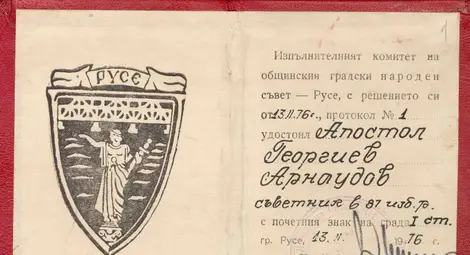 РУСЕ
Изпълнителният комитет на
общинския градски народен
съвет — Русе, с решението си
от 13.II.76г., протокол № 1
удостои Апостол
Георгиев
Арнаудов
съветник в 81 изб. р.
с почетния знак на града I ст.
гр. Русе, 13. II. 1976 г.